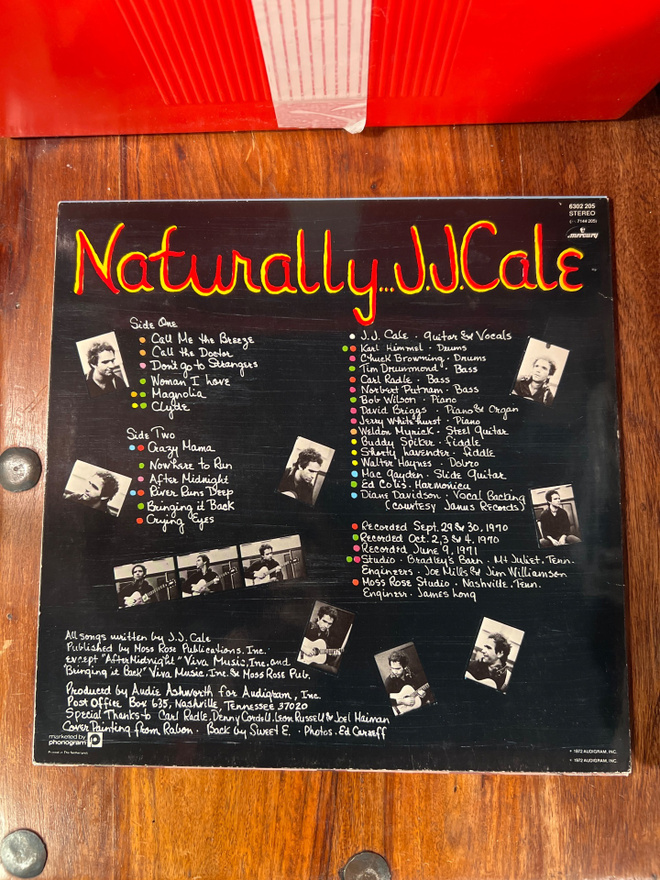 6302 205
STEREO
mercury
Naturally...J.J.Cale
Side One
Call Me the Breeze
Call the Doctor
Don't go to Strangers
Woman I Love
Magnolia
Clyde
Side Two
Crazy Mama
Nowhere to Run
After Midnight
River Runs Deep
Bringing it Back
Crying Eyes
J.J. Cale · guitar & Vocals
Karl Himmel · Drums
Chuck Browning · Drums
Tim Drummond · Bass
Carl Radle · Bass
Norbert Putnam · Bass
Bob Wilson · Piano
David Briggs · Piano & Organ
Jerry Whitehurst · Piano
Weldon Myrick · Steel Guitar
Buddy Spiker · fiddle
Shorty Lavender · fiddle
Walter Haynes · Dobro
Mac Gayden · Slide Guitar
Ed Colis · Harmonica
Diane Davidson · Vocal Backing
(courtesy Janus Records)
Recorded Sept. 29 & 30, 1970
Recorded Oct. 2, 3 & 4, 1970
Recorded June 9, 1971
Studio · Bradley's Barn · Mt Juliet, Tenn.
Engineers · Joe Mills & Jim Williamson
Moss Rose Studio · Nashville, Tenn.
Engineer · James Long
All songs written by J.J. Cale
Published by Moss Rose Publications, Inc.
except "After Midnight" Viva Music, Inc. and
"Bringing it Back" Viva Music, Inc. & Moss Rose Pub.
Produced by Audie Ashworth for Audigram, Inc.
Post Office Box 635, Nashville, Tennessee 37020
Special Thanks to Carl Radle, Denny Cordell, Leon Russell & Joel Maiman
Cover Painting from Rabon · Back by Sweet E. · Photos · Ed
marketed by
phonogram
Printed in The Netherlands
℗ 1972 AUDIGRAM, INC.
© 1972 AUDIGRAM, INC.